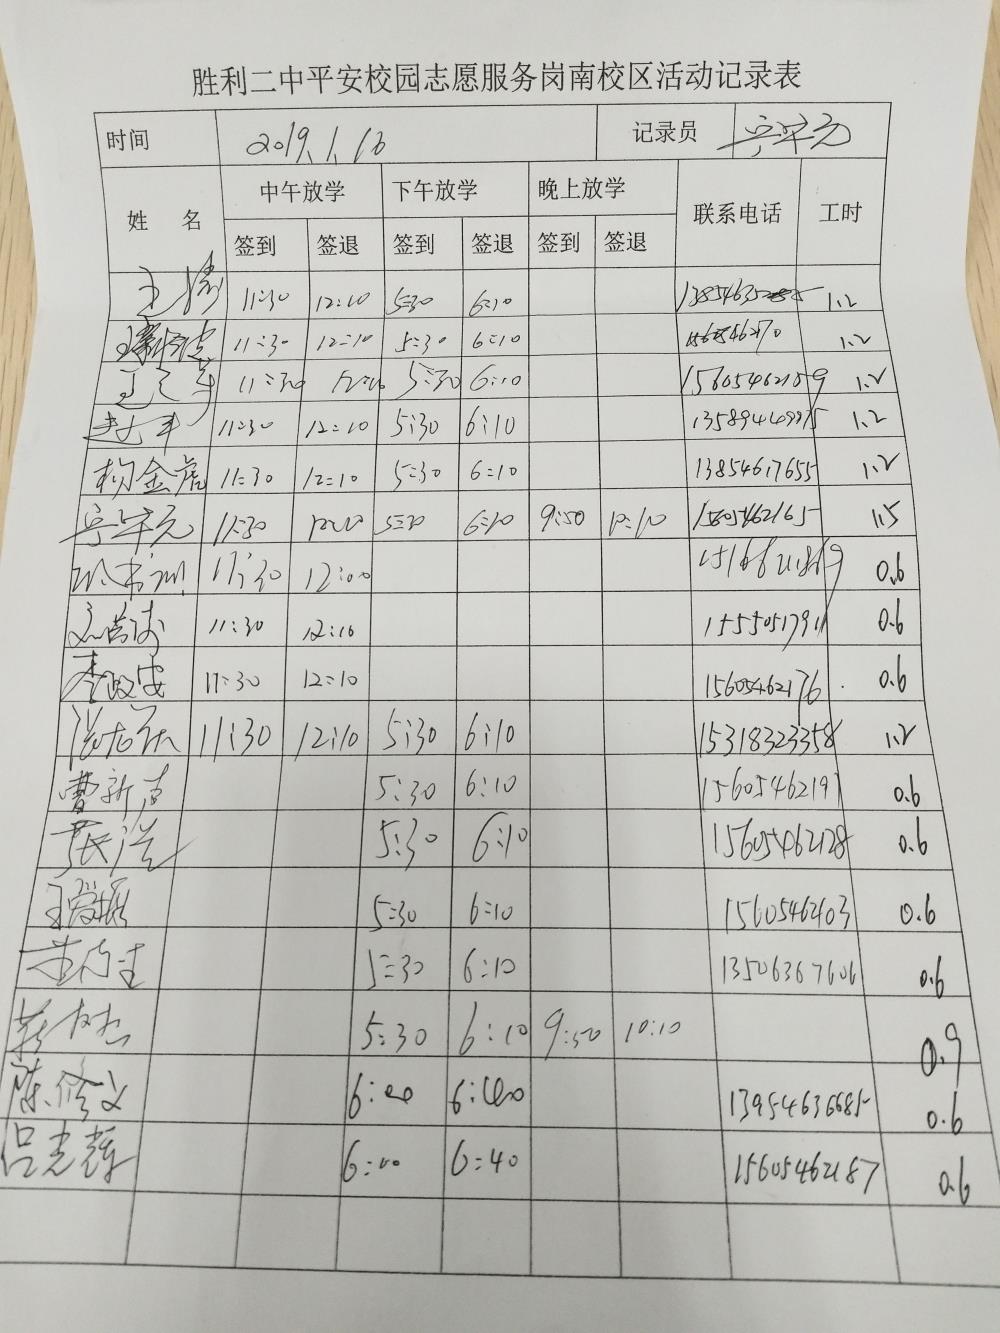 胜利二中平安校园志愿服务岗南校区活动记录表
时间 2019.1.16 记录员
姓 名 中午放学 下午放学 晚上放学 联系电话 工时
签到 签退 签到 签退 签到 签退
11:30 12:10 5:30 6:10 1.2
11:30 12:10 5:30 6:10 1.2
11:30 12:10 5:30 6:10 15605462159 1.2
11:30 12:10 5:30 6:10 1.2
杨金虎 11:30 12:10 5:30 6:10 13854617655 1.2
11:30 12:10 5:30 6:10 9:50 10:10 15605462165 1.5
11:30 12:00 0.6
11:30 12:10 0.6
李政安 11:30 12:10 15605462176 0.6
11:30 12:10 5:30 6:10 15318323358 1.2
5:30 6:10 15605462197 0.6
5:30 6:10 15605462128 0.6
5:30 6:10 0.6
5:30 6:10 13506367606 0.6
5:30 6:10 9:50 10:10 0.9
陈修文 6:00 6:40 13954636685 0.6
吕志辉 6:00 6:40 15605462187 0.6